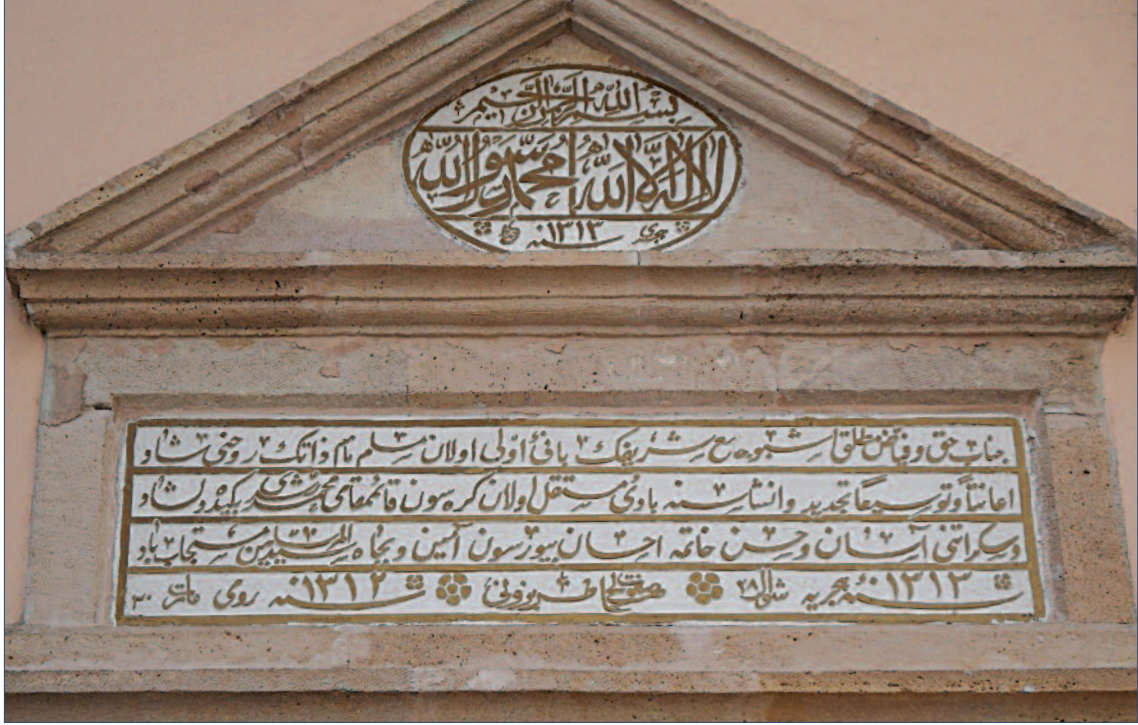 بسم الله الرحمن الرحيم
لا اله الا الله محمد رسول الله
سنه ١٣١٣ هجری
جناب حق و فیاض مطلق اشبو جامع شریفك بانئ اولی اولان مسلم نام ذاتك روحنی شاد
اعانتاً وتوسیعاً تجدید وانشاسنه بادئ مستقل اولان كره سون قائمقامی محمد رشدی بكیده دلشاد
وسكراتنی آسان وحسن خاتمه احسان بیورسون آمین وبجاه سید المرسلین مستجاب باد
سنه ١٣١٣ هجریه شوال ٢٨ طربزونی سنه ١٣١٢ رومی مارت ٣٠